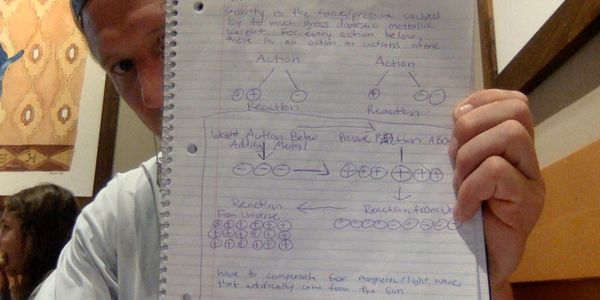 Gravity is the force/pressure caused
by to much gross domestic mettallic
weight. For every action below,
there is an action or actions above.
Action Action
+ + - + - -
Reaction Reaction
Weight Action Below Pressure Action ABO
Adding Metal
- - - + + + + + +
Reaction Reaction from Un
From Universe
- - - - - - - -
+ + + + + +
+ + + + + +
+ + + + + +
have to compensate for magnetic/light waves
that artificially come from the sun